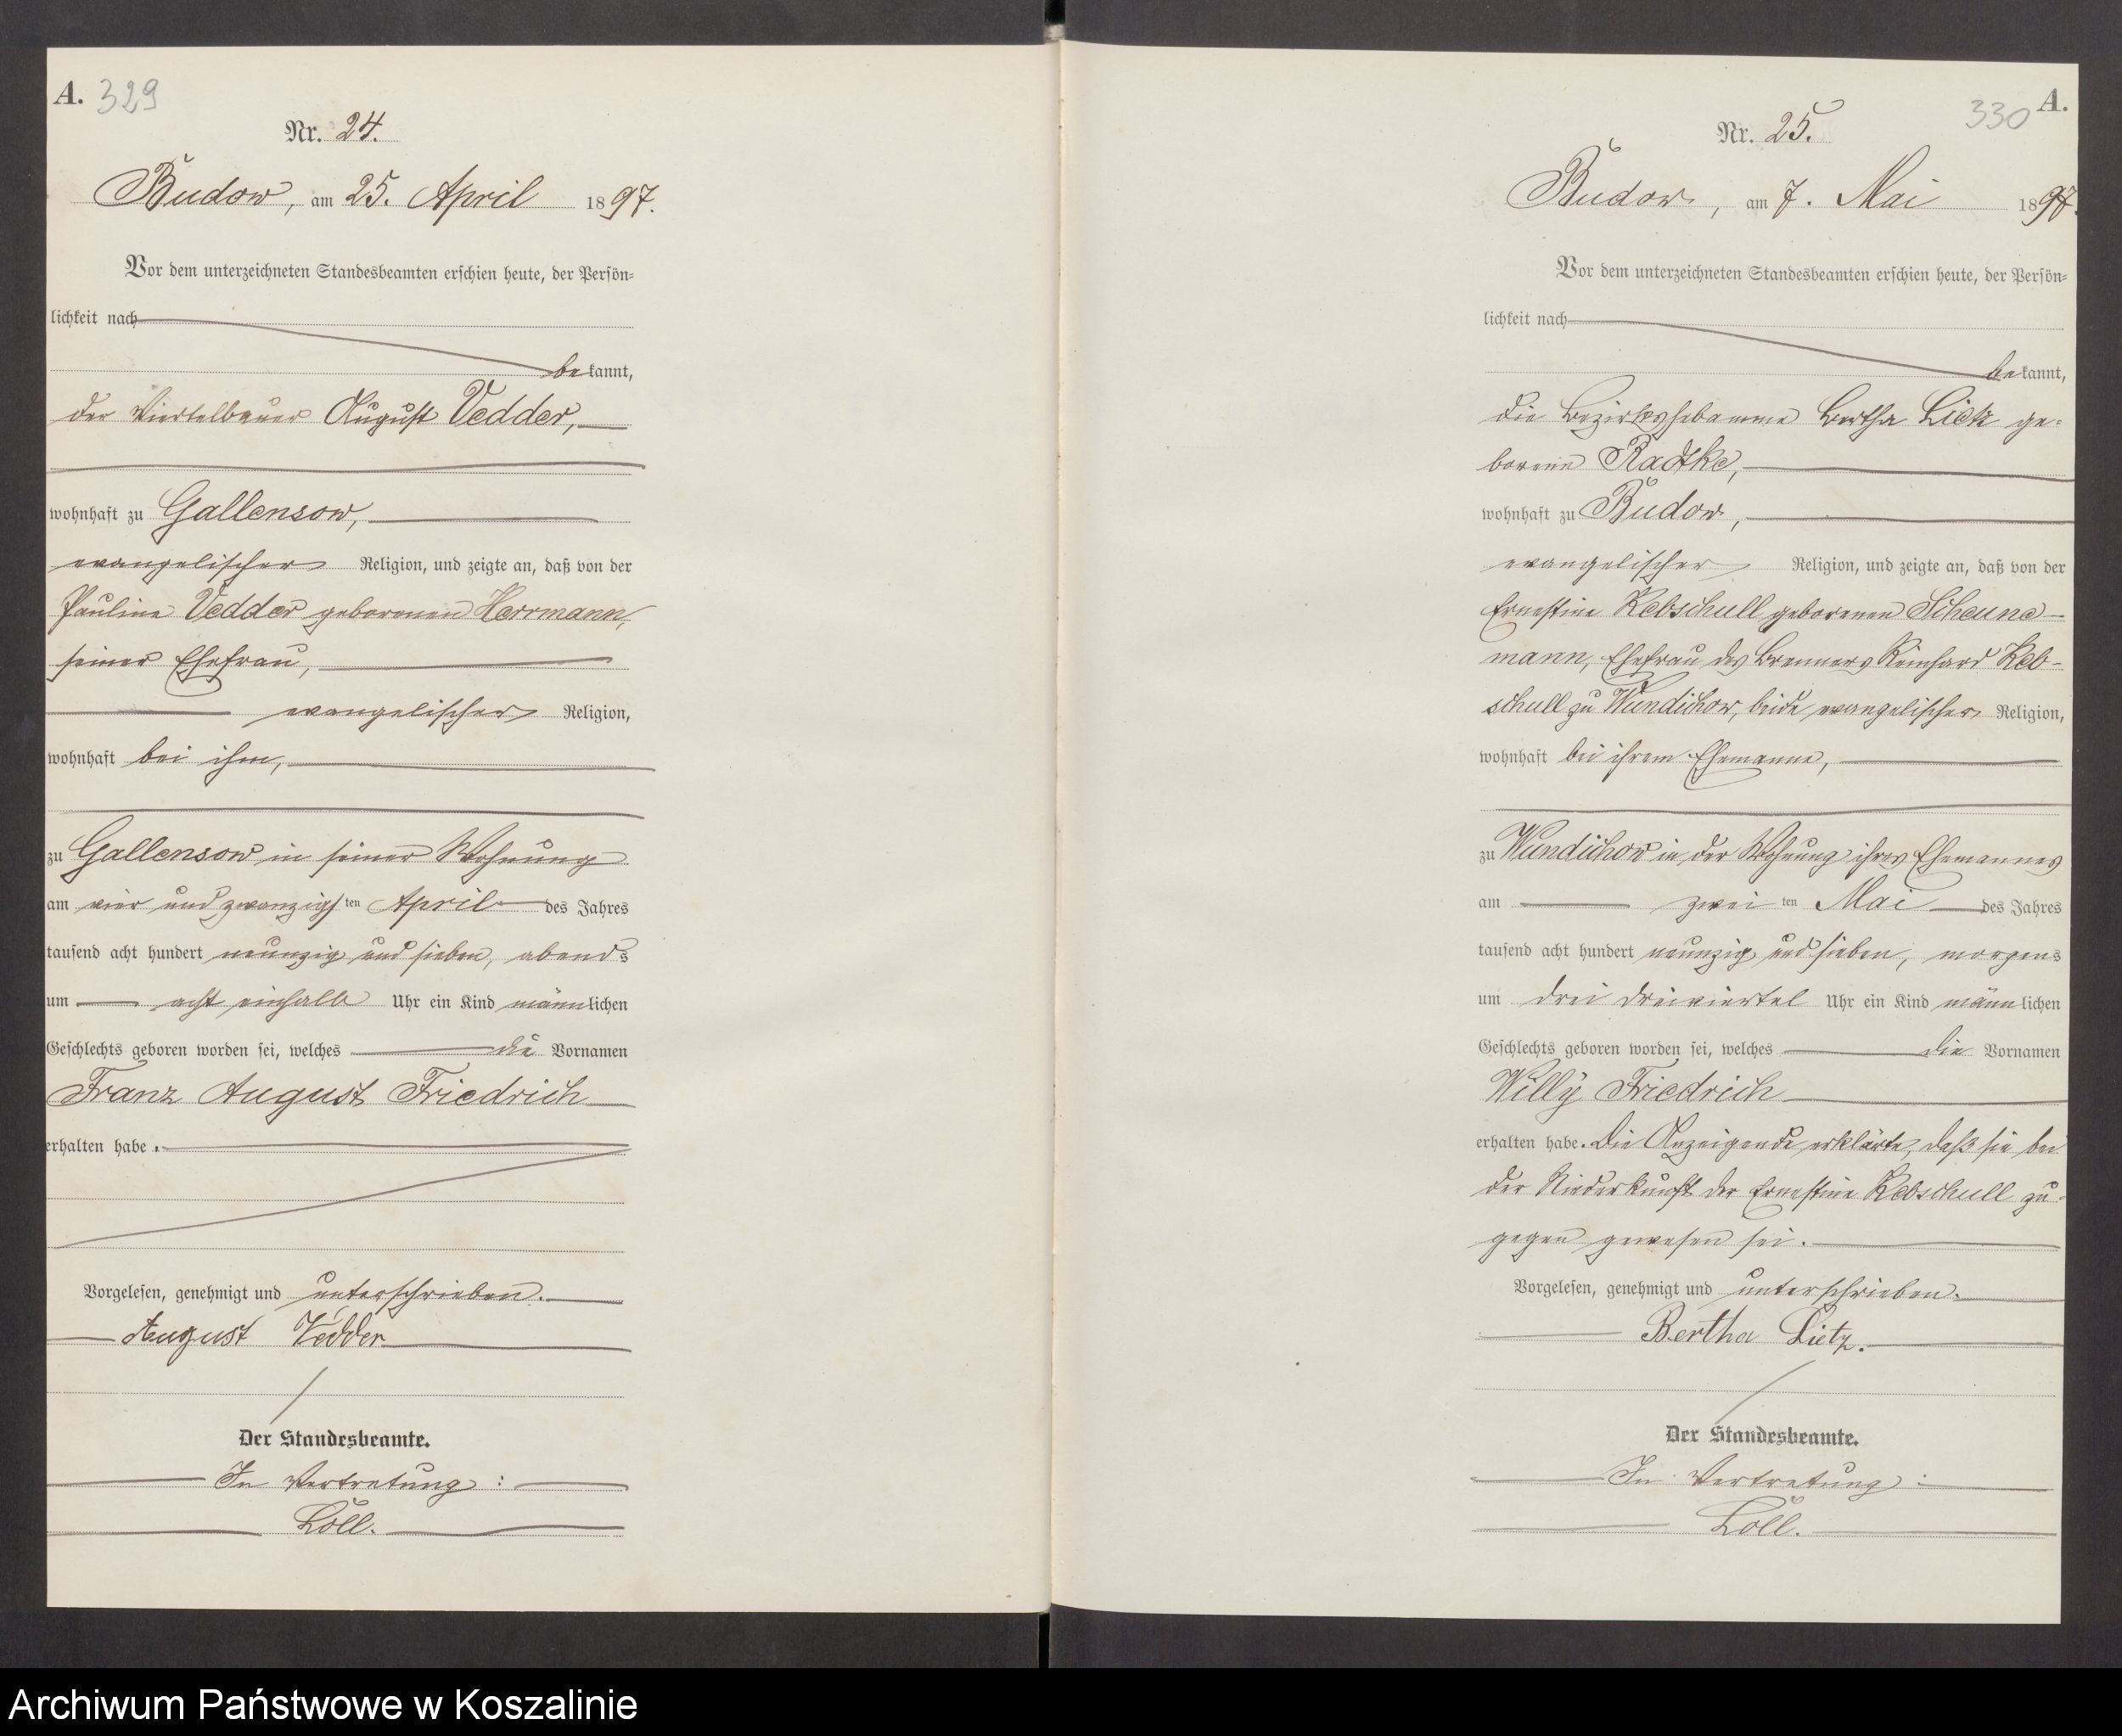 A. 329
Nr. 24.
Budow, am 25. April 1897.
Vor dem unterzeichneten Standesbeamten erschien heute, der Persön-
lichkeit nach
bekannt,
der Viertelbauer August Vedder,
wohnhaft zu Gallensow,
evangelischer Religion, und zeigte an, daß von der
Pauline Vedder geborenen Herrmann,
seiner Ehefrau,
evangelischer Religion,
wohnhaft bei ihm,
zu Gallensow in seiner Wohnung
am vier und zwanzigsten April des Jahres
tausend acht hundert neunzig und sieben, abends
um acht einhalb Uhr ein Kind männlichen
Geschlechts geboren worden sei, welches die Vornamen
Franz August Friedrich
erhalten habe.
Vorgelesen, genehmigt und unterschrieben.
August Vedder
Der Standesbeamte.
In Vertretung:
Löll.
330 A.
Nr. 25.
Budow, am 7. Mai 1897.
Vor dem unterzeichneten Standesbeamten erschien heute, der Persön-
lichkeit nach
bekannt,
die Bezirkshebamme Bertha Lietz ge-
borene Radtke,
wohnhaft zu Budow,
evangelischer Religion, und zeigte an, daß von der
Ernestine Kebschull geborenen Scheune-
mann, Ehefrau des Brenners Reinhard Keb-
schull zu Wundichow, beide evangelischer Religion,
wohnhaft bei ihrem Ehemanne,
zu Wundichow in der Wohnung ihres Ehemannes
am zweiten Mai des Jahres
tausend acht hundert neunzig und sieben, morgens
um drei dreiviertel Uhr ein Kind männlichen
Geschlechts geboren worden sei, welches die Vornamen
Willy Friedrich
erhalten habe. Die Anzeigende erklärte, daß sie bei
der Niederkunft der Ernestine Kebschull zu-
gegen gewesen sei.
Vorgelesen, genehmigt und unterschrieben.
Bertha Lietz.
Der Standesbeamte.
In Vertretung:
Löll.
Archiwum Państwowe w Koszalinie